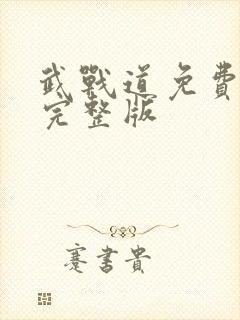 武戰道免費
完整版
蹇書貴